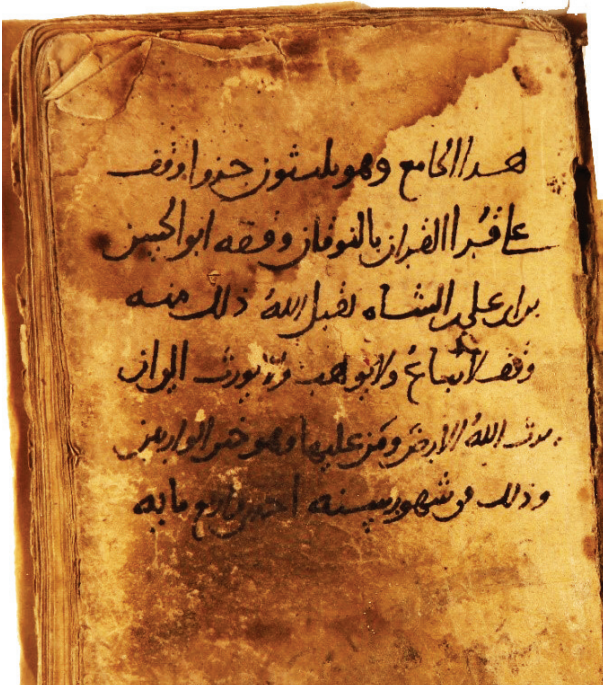 هدا الجامع وهو ثلثون جزوا وقف
على قرا القران بالنوقان وقفه ابو الحسن
بن ابى على الشاه تقبل الله ذلك منه
وقف لا يباع ولا يوهب ولا يورث الى ان
يرث الله الارض ومن عليها وهو خير الوارثين
وذلك فى شهور سنه احدى واربع مايه